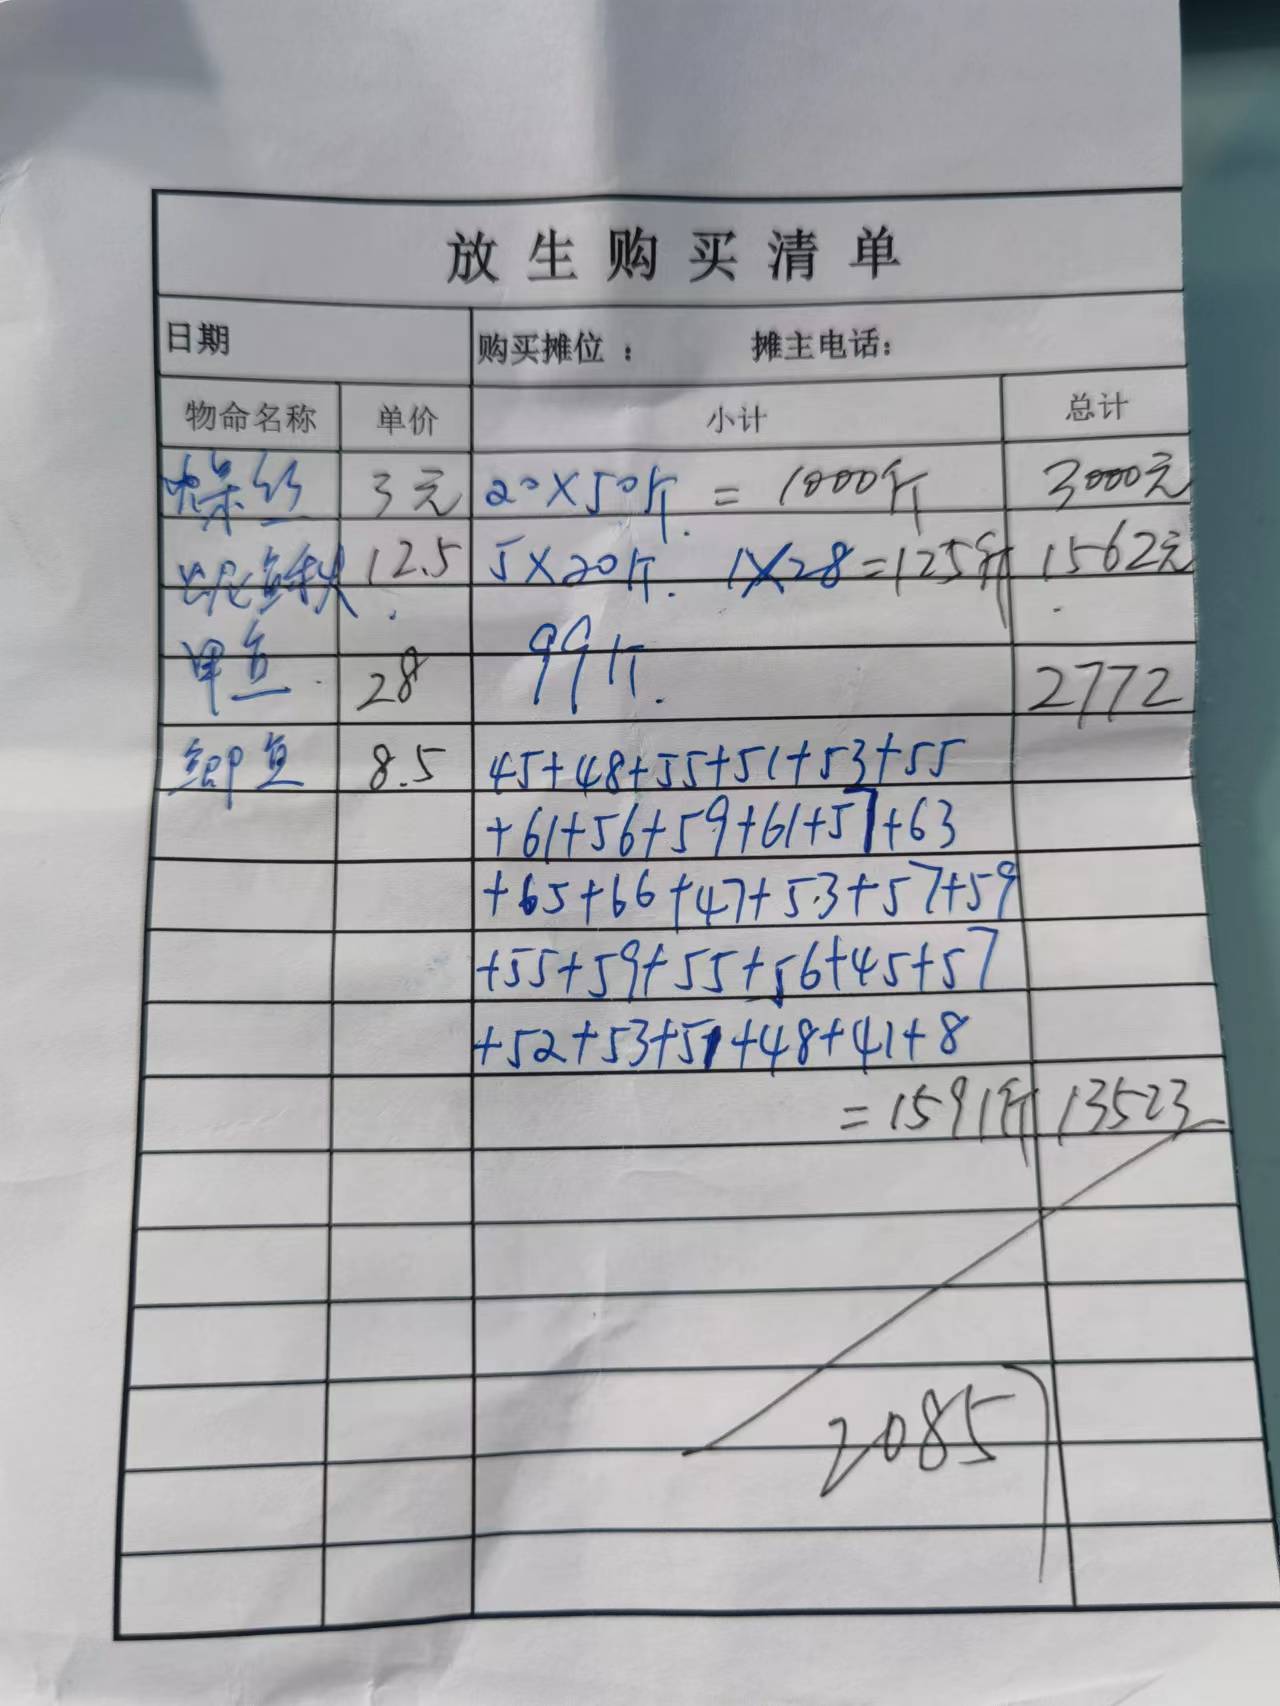 放生购买清单
日期 购买摊位： 摊主电话：
物命名称 单价 小计 总计
螺丝 3元 20×50斤 = 1000斤 3000元
泥鳅 12.5 5×20斤. 1×28=125斤 1562元
甲鱼 28 99斤. 2772
鲫鱼 8.5 45+48+55+51+53+55
+61+56+59+61+57+63
+65+66+47+53+57+59
+55+59+55+56+45+57
+52+53+51+48+41+8
=1591斤 13523
20857